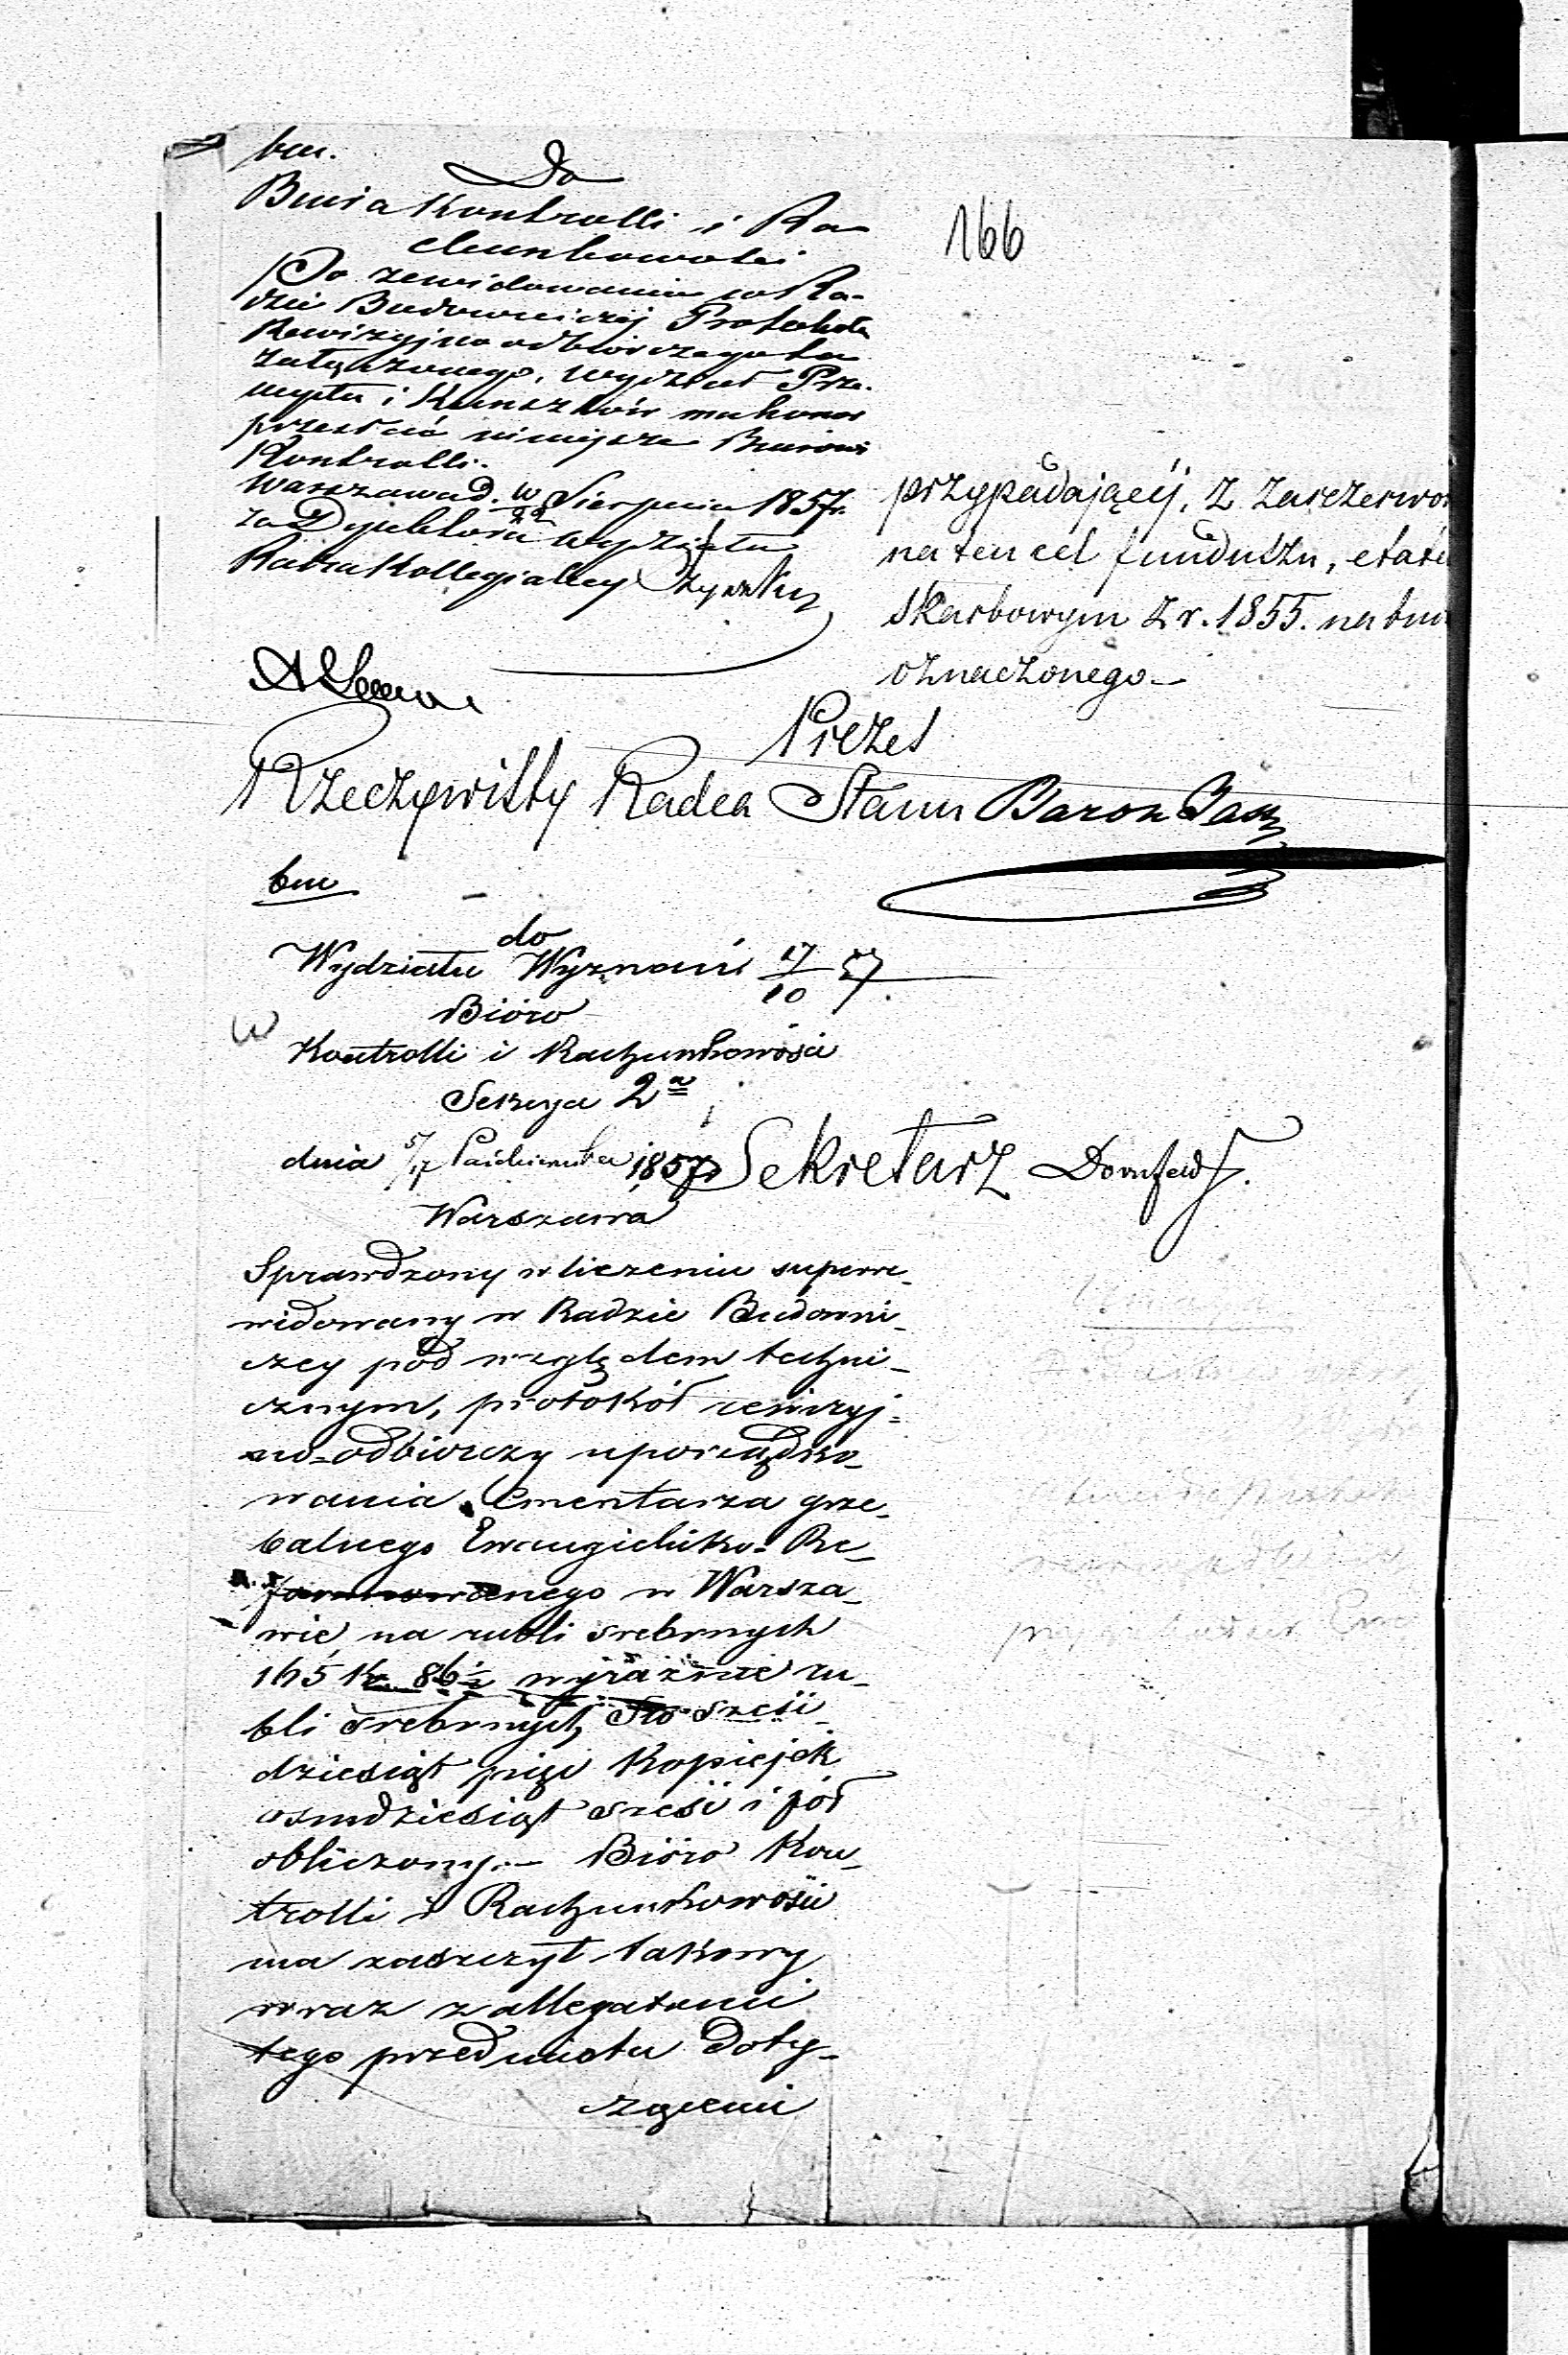 bm.
Do
Biura Kontrolli i Ra-
chunkowości
Po zewidowaniu w Ra-
dzie Budowniczéj Protokółu
Rewizyjno odbiorczego tu
załączonego, Wydział Prze-
mysłu i Kunsztów ma honor
przesłać niniejsze Biurowi
Kontrolli.
Warszawa d. Sierpnia 1857 r.
za Dyrektora Wydziału
Radca Kollegialny
166
przypadającéj, z zarezerwo
na ten cel funduszu, etate
skarbowym z r. 1855. na bu
oznaczonego
Prezes
Rzeczywisty Radca Stanu Baron
bm
do
Wydziału Wyznań 17/10 57.
Bióro
Kontrolli i Rachunkowości
Sekcya 2a
dnia 5/17 Października 1857 r.
Warszawa
Sekretarz Dornfeld
Sprawdzony w liczeniu superre-
widowany w Radzie Budowni-
czey pod względem techni-
cznym, protokół rewizyj-
no-odbiorczy uporządko-
wania Cmentarza grze-
balnego Ewangielicko-Re-
formowanego w Warsza-
wie na rubli srebrnych
165 k. 86½ wyraźnie ru-
bli srebrnych sto sześć-
dziesiąt pięć kopiejek
osmdziesiąt sześć i pół
obliczony. — Bióro Kon-
trolli i Rachunkowości
ma zaszczyt takowy
wraz z allegatami
tego przedmiotu doty-
czącemi